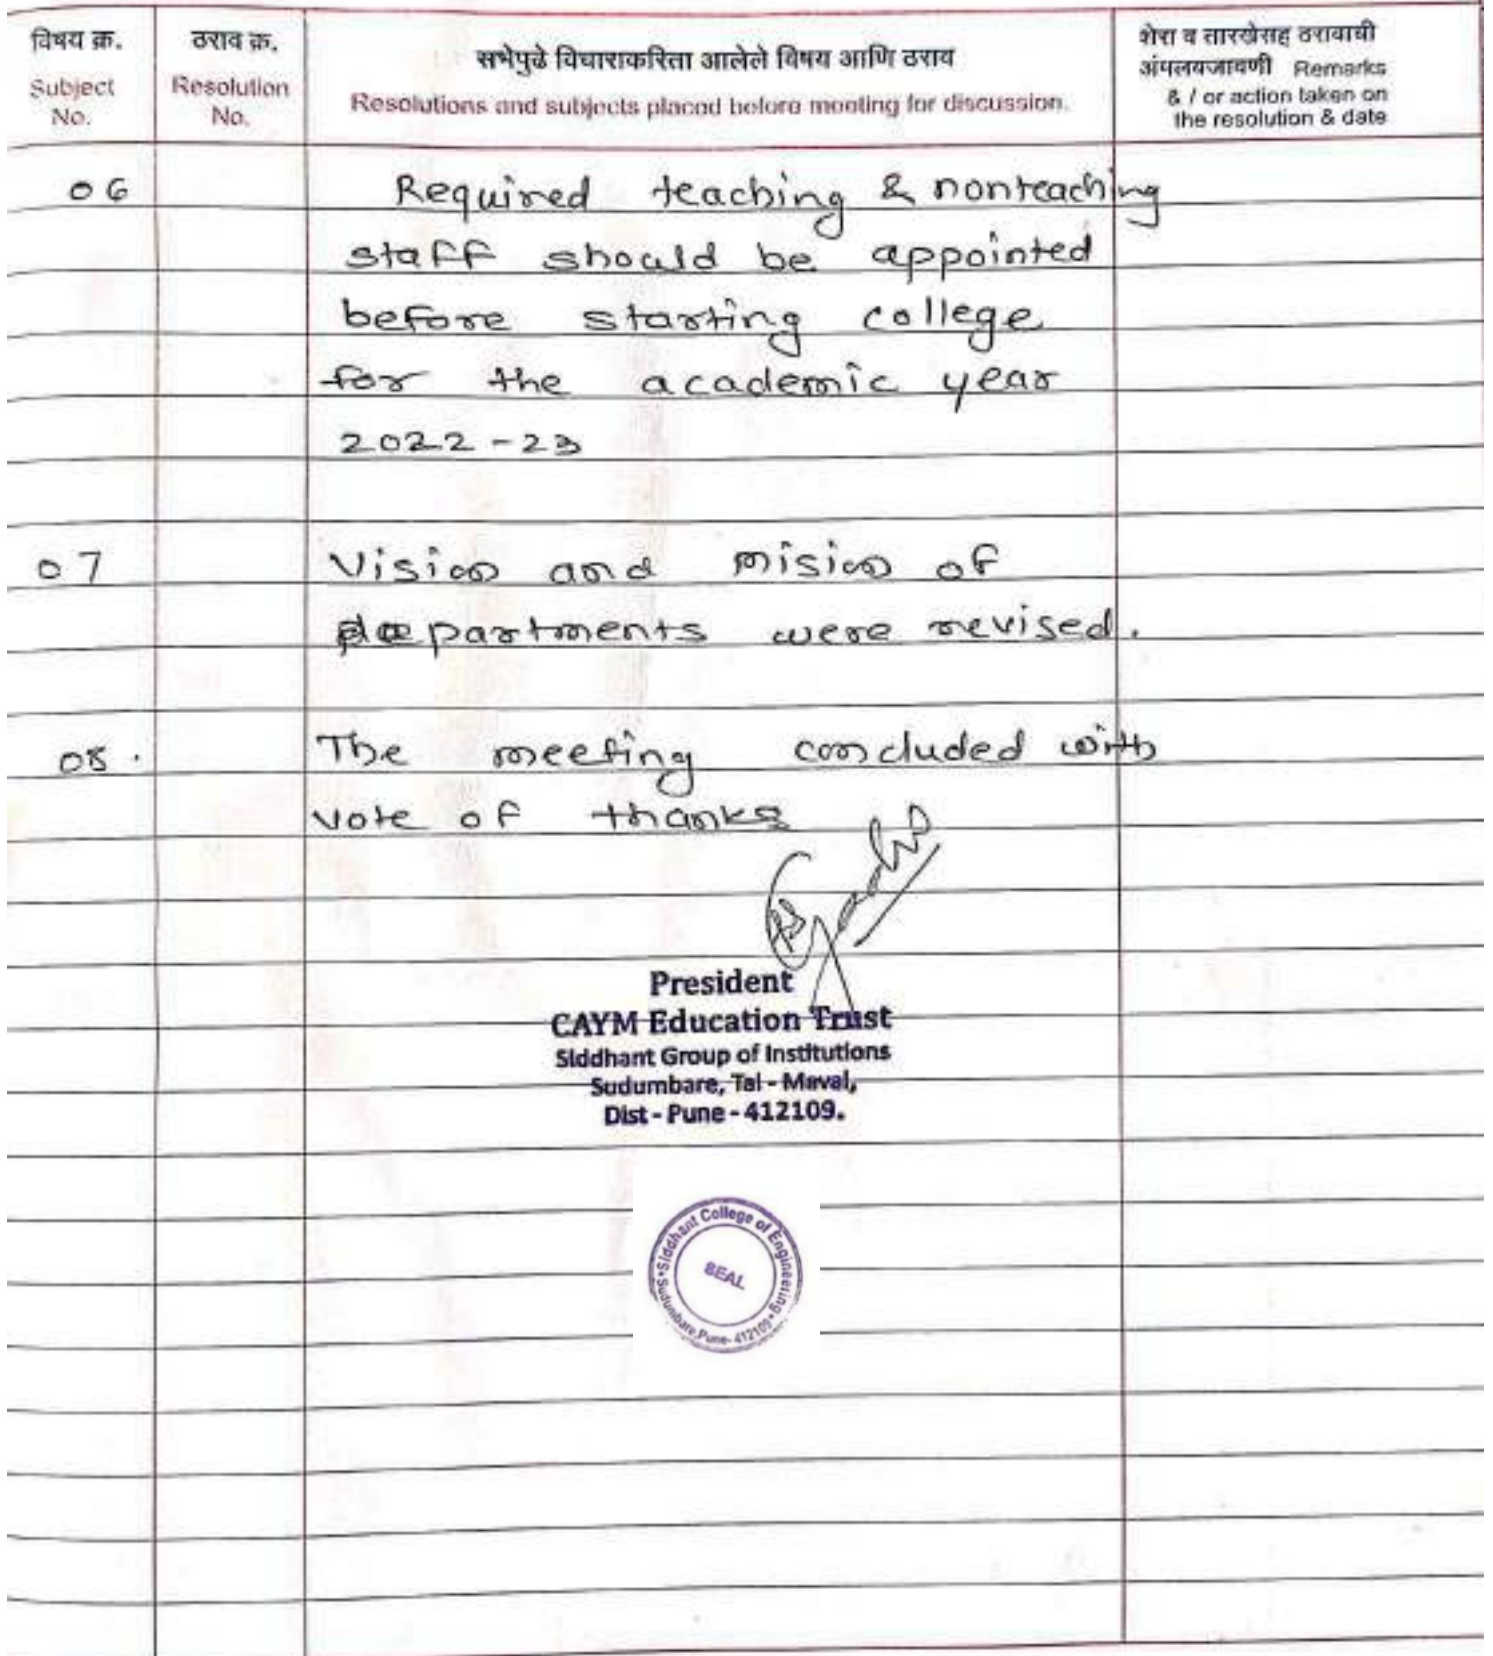 विषय क्र.
Subject
No.
ठराव क्र.
Resolution
No.
सभेपुढे विचाराकरिता आलेले विषय आणि ठराव
Resolutions and subjects placed before meeting for discussion.
शेरा व तारखेसह ठरावाची
अंमलबजावणी Remarks
& / or action taken on
the resolution & date
06 Required teaching & nonteaching
staff should be appointed
before starting college
for the academic year
2022-23
07 Vision and mision of
departments were revised.
08. The meeting concluded with
vote of thanks
President
CAYM Education Trust
Siddhant Group of Institutions
Sudumbare, Tal - Maval,
Dist - Pune - 412109.
Siddhant College of Engineering
Sudumbare, Pune- 412109
SEAL